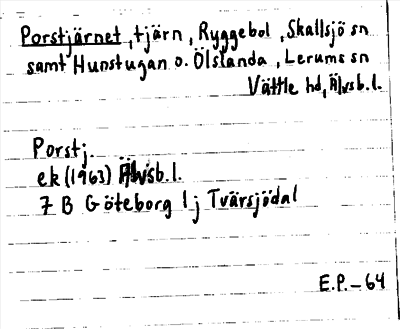 Porstjärnet, tjärn, Ryggebol, Skallsjö sn
samt Hunstugan o. Ölslanda, Lerums sn
Vättle hd, Älvsb.l.
Porstj.
ek (1963) Älvsb.l.
7 B Göteborg 1 j Tvärsjödal
E.P.-64